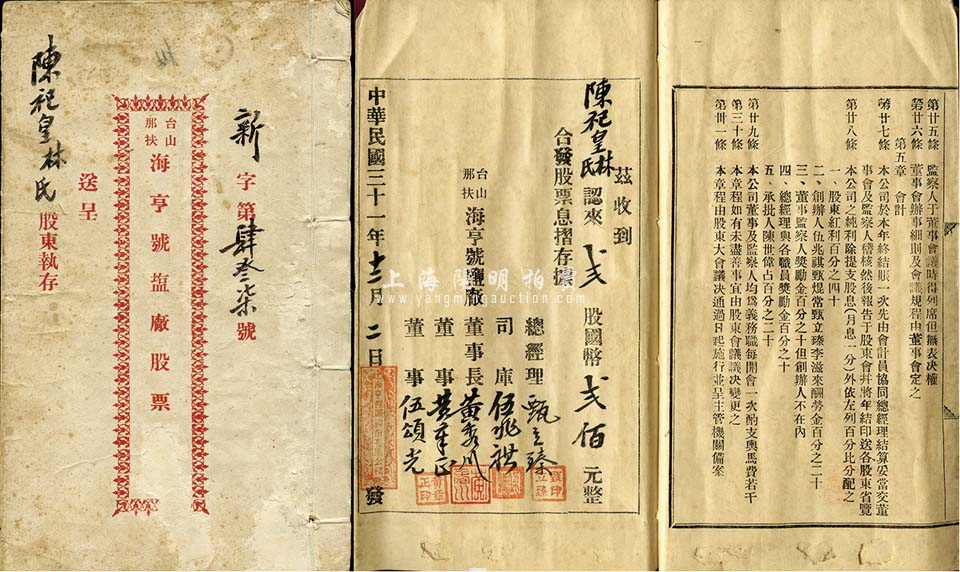 新字第肆叁柒號
台山
那扶
海亨號塩廠股票
送呈
陳祀皇林氏股東執存
茲收到
陳祀皇林氏認來弍股國幣弍佰元整
合發股票息摺存據
台山
那扶
海亨號鹽廠
總經理甄立臻
司庫伍兆祺
董事長黃
董事黃章正
董事伍頌光
中華民國三十一年十二月二日發
第廿五條 監察人于董事會議時得列席但無表决權
第廿六條 董事會辦事細則及會議規程由董事會定之
第五章 會計
第廿七條 本公司於本年終結賬一次先由會計員協同總經理結算妥當交董
事會及監察人稽核然後報告于股東會幷將年結印送各股東省覽
第廿八條 本公司之純利除提支股息（月息一分）外依左列百分比分配之
一、股東紅利百分之四十
二、創辦人伍兆祺甄焜常甄立臻李滋來酬勞金百分之二十
三、董事監察人獎勵金百分之十但創辦人不在內
四、總經理與各職員獎勵金百分之十
五、承批人陳世偉占百分之二十
第廿九條 本公司董事及監察人均爲義務職每開會一次酌支輿馬費若干
第三十條 本章程如有未盡善事宜由股東會議議决變更之
第卅一條 本章程由股東大會議决通過日起施行並呈主管機關備案
上海陽明拍賣
www.yangmingauction.com